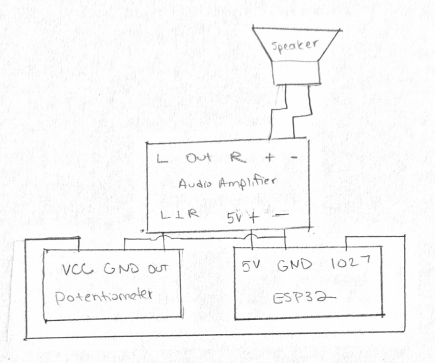 Speaker
L Out R + -
Audio Amplifier
L ⊥ R 5V + -
VCC GND OUT
Potentiometer
5V GND IO27
ESP32